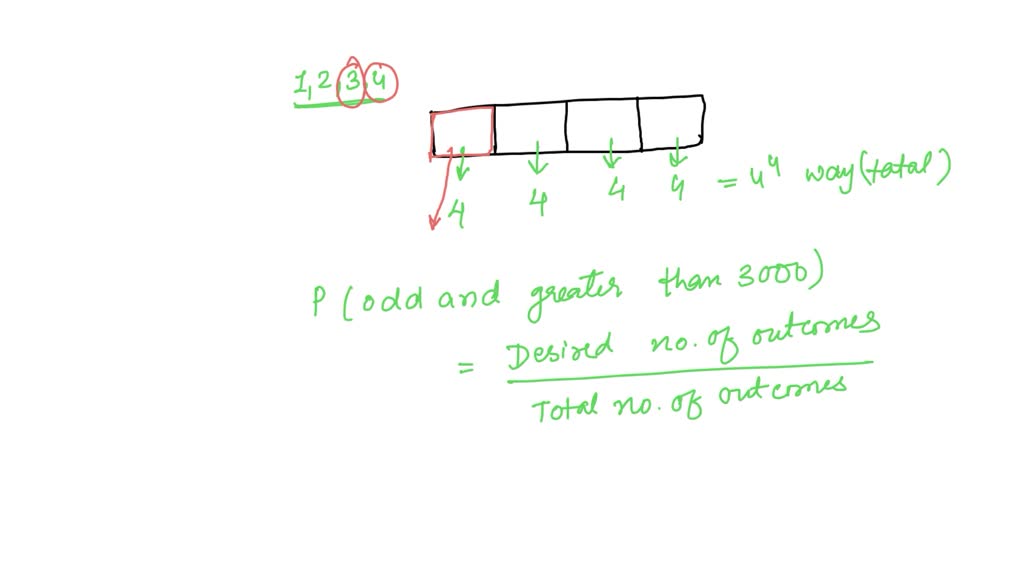 1, 2, 3, 4
4 4 4 4 = 4⁴ way (total)
P (odd and greater than 3000)
= Desired no. of outcomes
Total no. of outcomes